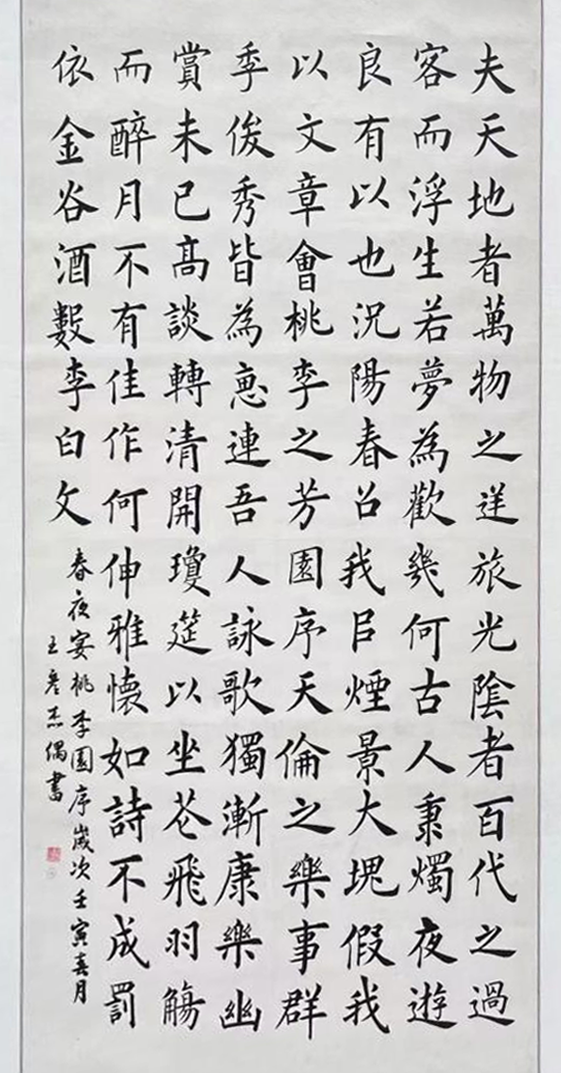 夫天地者萬物之逆旅光陰者百代之過
客而浮生若夢為歡幾何古人秉燭夜遊
良有以也況陽春召我㠯煙景大塊假我
以文章會桃李之芳園序天倫之樂事群
季俊秀皆為惠連吾人詠歌獨漸康樂幽
賞未已髙談轉清開瓊筵以坐花飛羽觴
而醉月不有佳作何伸雅懷如詩不成罰
依金谷酒數李白文
春夜宴桃李園序歲次壬寅春月
王彥杰偶書